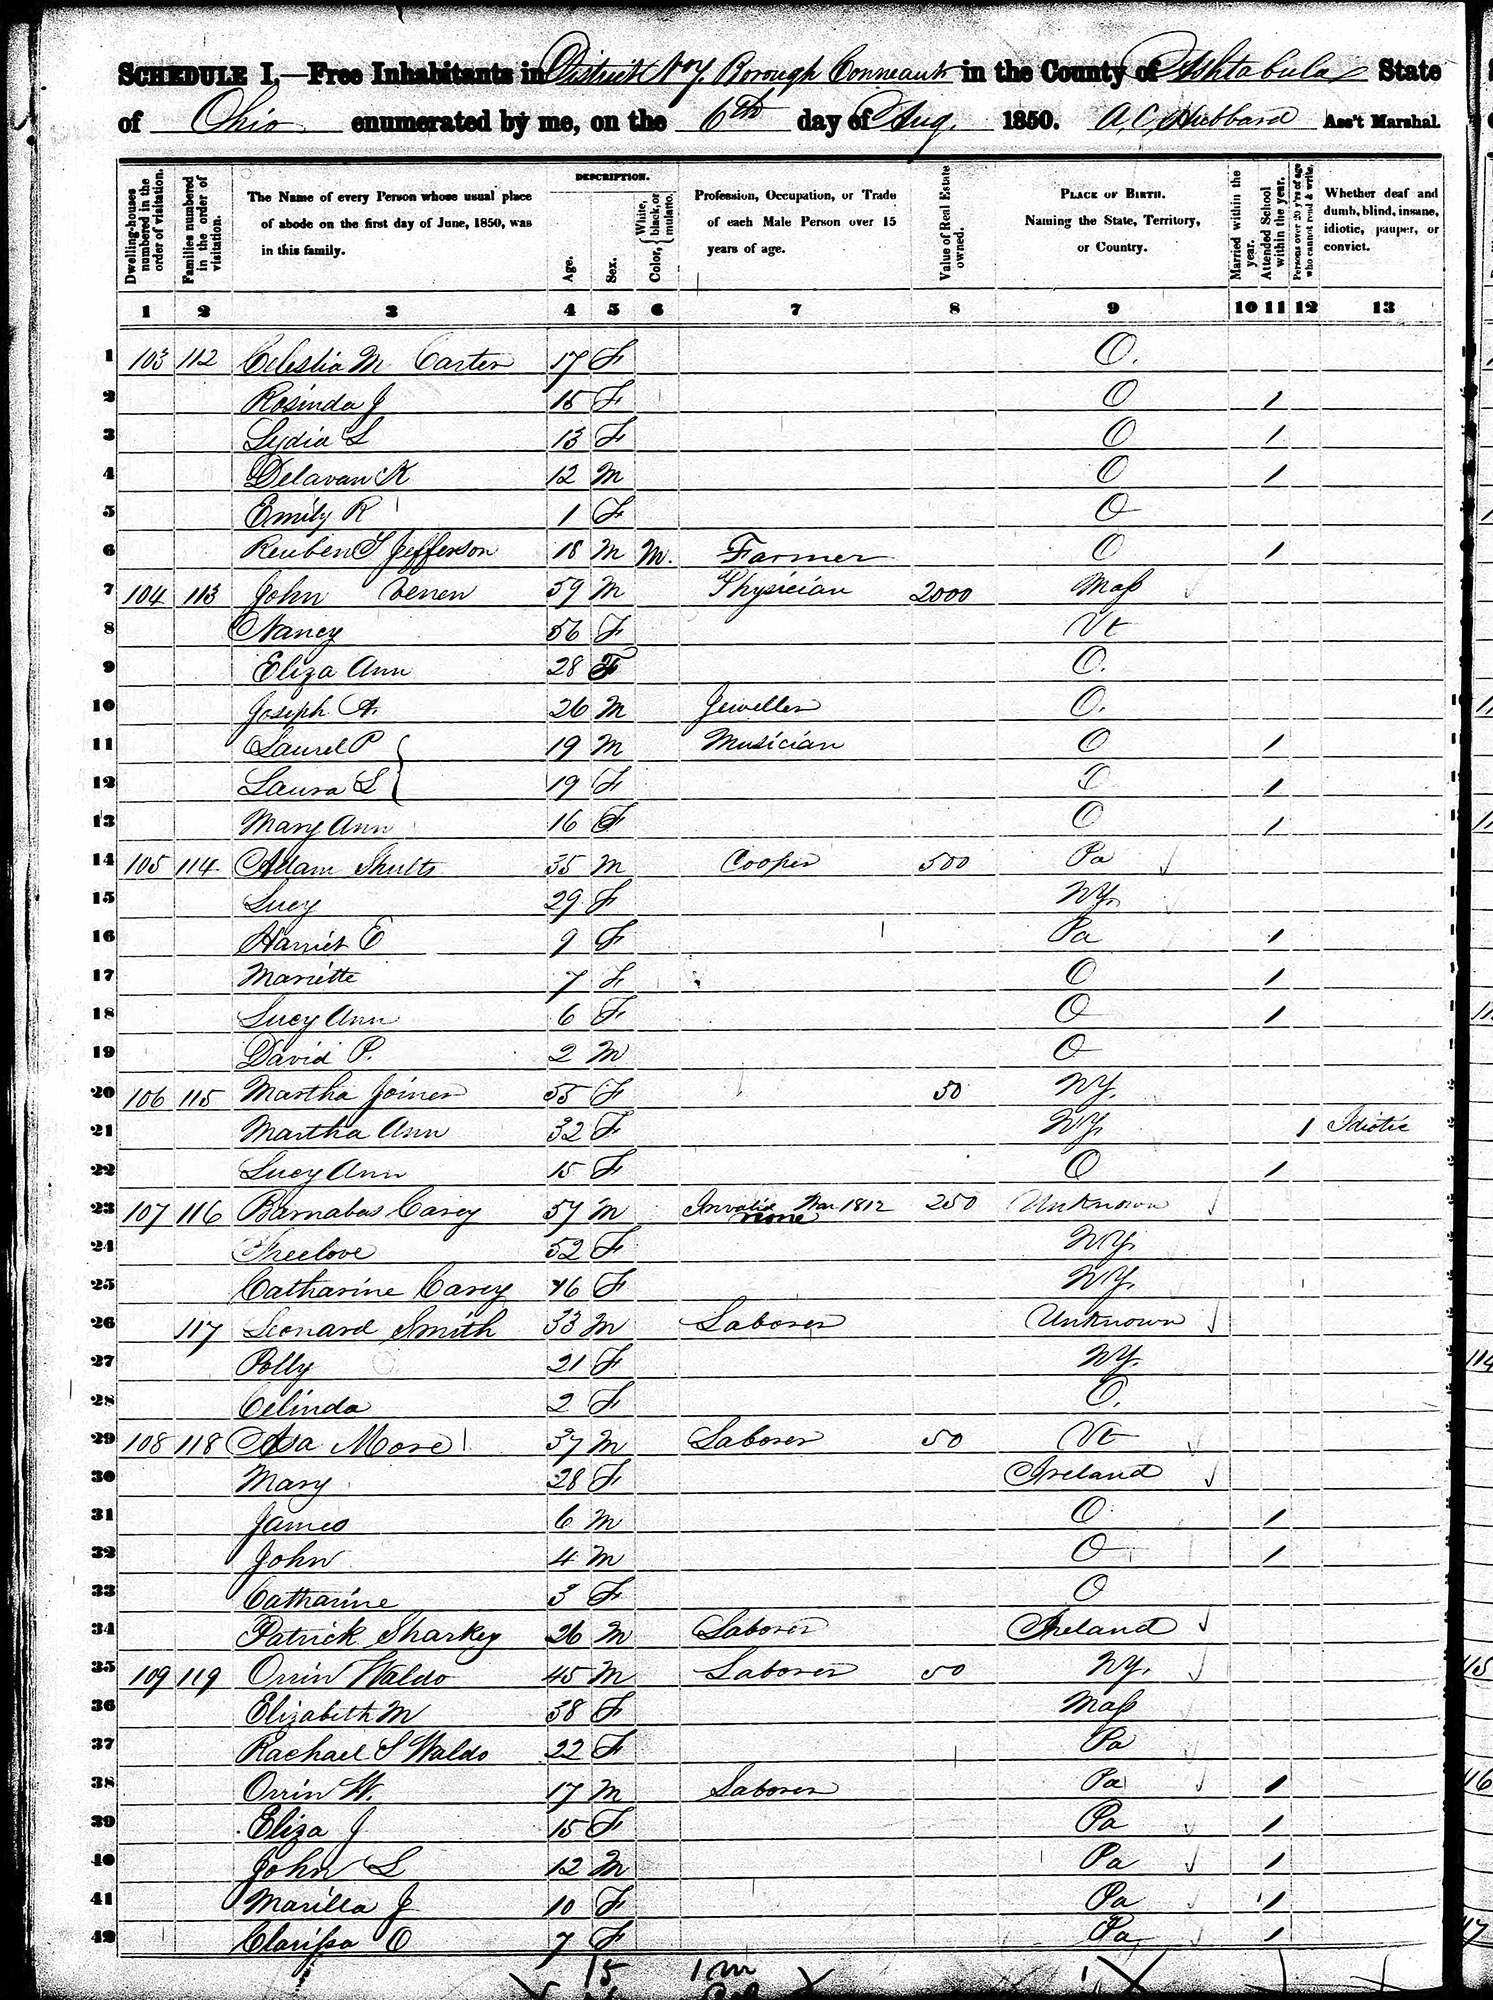 SCHEDULE I.—Free Inhabitants in District No 7. Borough Conneaut in the County of Ashtabula State
of Ohio enumerated by me, on the 6th day of Aug. 1850. A. C. Hubbard Ass't Marshal.
Dwelling-houses numbered in the order of visitation.
Families numbered in the order of visitation.
The Name of every Person whose usual place of abode on the first day of June, 1850, was in this family.
DESCRIPTION.
Age.
Sex.
Color, White, black, or mulatto.
Profession, Occupation, or Trade of each Male Person over 15 years of age.
Value of Real Estate owned.
PLACE OF BIRTH. Naming the State, Territory, or Country.
Married within the year.
Attended School within the year.
Persons over 20 y'rs of age who cannot read & write.
Whether deaf and dumb, blind, insane, idiotic, pauper, or convict.
1 2 3 4 5 6 7 8 9 10 11 12 13
1 103 112 Celestia M Carter 17 F O.
2 Rosinda J 15 F O 1
3 Lydia L 13 F O 1
4 Delavan K 12 M O 1
5 Emily R 1 F O
6 Reuben S Jefferson 18 M M. Farmer O 1
7 104 113 John Venen 59 M Physician 2000 Mass
8 Nancy 56 F Vt
9 Eliza Ann 28 F O.
10 Joseph A. 26 M Jeweller O.
11 Laurel P 19 M Musician O 1
12 Laura L 19 F O 1
13 Mary Ann 16 F O 1
14 105 114 Adam Shults 35 M Cooper 500 Pa
15 Lucy 29 F NY.
16 Harriet E 9 F Pa 1
17 Mariette 7 F O 1
18 Lucy Ann 6 F O 1
19 David P. 2 M O
20 106 115 Martha Joiner 55 F 50 NY.
21 Martha Ann 32 F NY. 1 Idiotic
22 Lucy Ann 15 F O 1
23 107 116 Barnabas Carey 57 M Invalid War 1812 none 250 Unknown
24 Freelove 52 F NY.
25 Catharine Carey 76 F NY.
26 117 Leonard Smith 33 M Laborer Unknown
27 Polly 21 F NY.
28 Celinda 2 F O.
29 108 118 Asa More 37 M Laborer 50 Vt
30 Mary 28 F Ireland
31 James 6 M O 1
32 John 4 M O 1
33 Catharine 3 F O
34 Patrick Sharkey 26 M Laborer Ireland
35 109 119 Orrin Waldo 45 M Laborer 50 NY.
36 Elizabeth M 38 F Mass
37 Rachael S Waldo 22 F Pa
38 Orrin W. 17 M Laborer Pa 1
39 Eliza J 15 F Pa 1
40 John L 12 M Pa 1
41 Marilla J 10 F Pa 1
42 Clarissa O 7 F Pa 1
15 1m